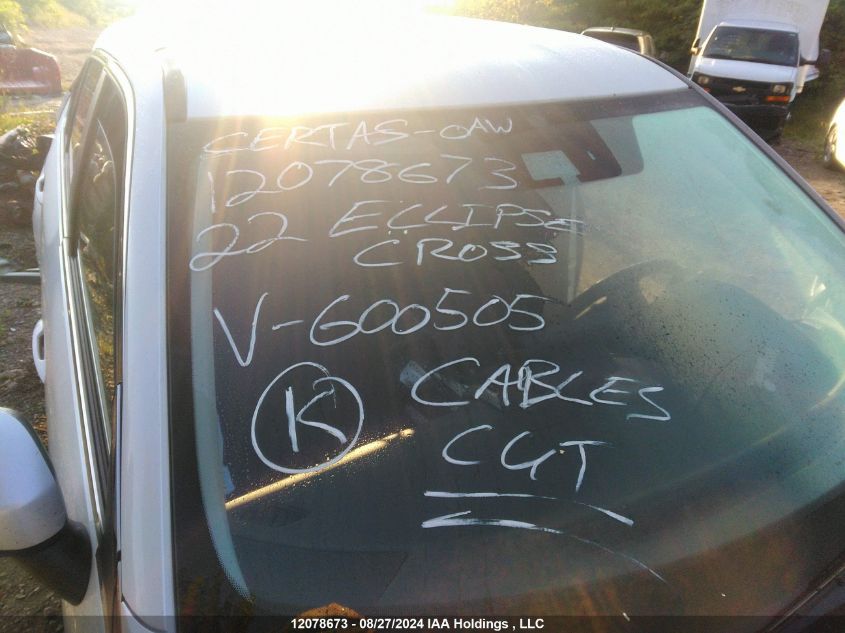 CERTAS-OAW
12078673
22 ECLIPSE
CROSS
V-600505
K CABLES
CUT
12078673 - 08/27/2024 IAA Holdings , LLC